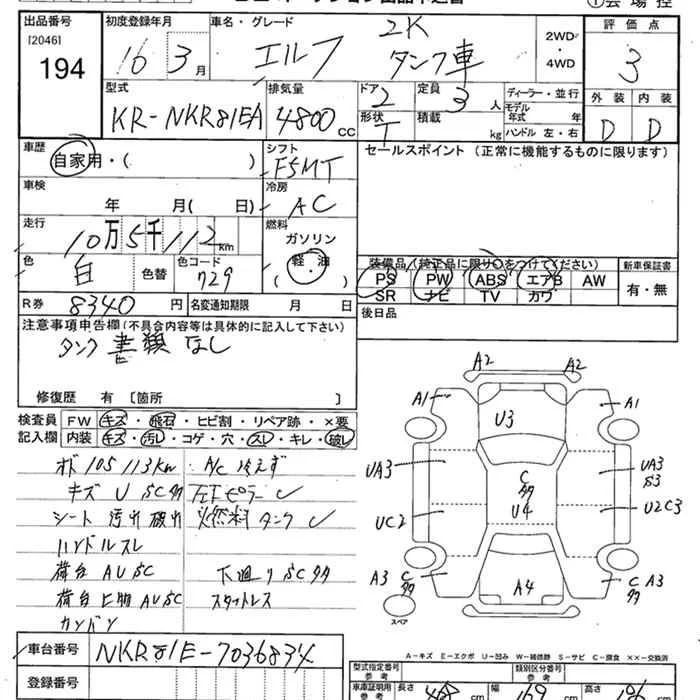 出品番号 初度登録年月 車名・グレード 評価点
[2046]
194
16 3 月 エルフ 2K タンク車
2WD・4WD
3
型式 排気量 ドア 定員 ディーラー・並行 外装 内装
KR-NKR81EA 4800 CC 2 3 人 モデル年式 年 D D
形状 積載 kg ハンドル 左・右
T
車歴 シフト セールスポイント (正常に機能するものに限ります)
自家用・( ) F5MT
車検 冷房
年 月( 日) AC
走行 燃料
10万5千112 km ガソリン
軽・油
( )
色 色替 色コード
白 729
装備品(純正品に限り○をつけてください) 新車保証書
PS PW ABS エアB AW 有・無
SR ナビ TV カワ
R券 8340 円 名変通知期限 月 日
後日品
注意事項申告欄(不具合内容等は具体的に記入して下さい)
タンク書類なし
修復歴 有 [箇所 ]
検査員 FW キズ・飛石・ヒビ割・リペア跡・×要
記入欄 内装 キズ・汚れ・コゲ・穴・スレ・キレ・破レ
オド105113km A/C冷えず
キズ U SC タタ 左右ピラー U
シート汚れ破れ 燃料タンク U
ハンドルスレ
荷台AUSC 下廻りSCタタ
荷台上物AUSC スタットレス
カントン
A2 A2
A1 A1
U3
UA3 UA3
S3
C
タタ
U4
UC2 U2C3
A3 C
タタ
A4
C
タタ
A3
スペア
A-キズ E-エクボ U-凹み W-補修跡 S-サビ C-腐食 XX-交換済
車台番号 NKR81E-7036834
登録番号
型式指定番号 参考 類別区分番号 参考
車庫証明用 参考 長さ cm 幅 169 cm 高さ 196 cm